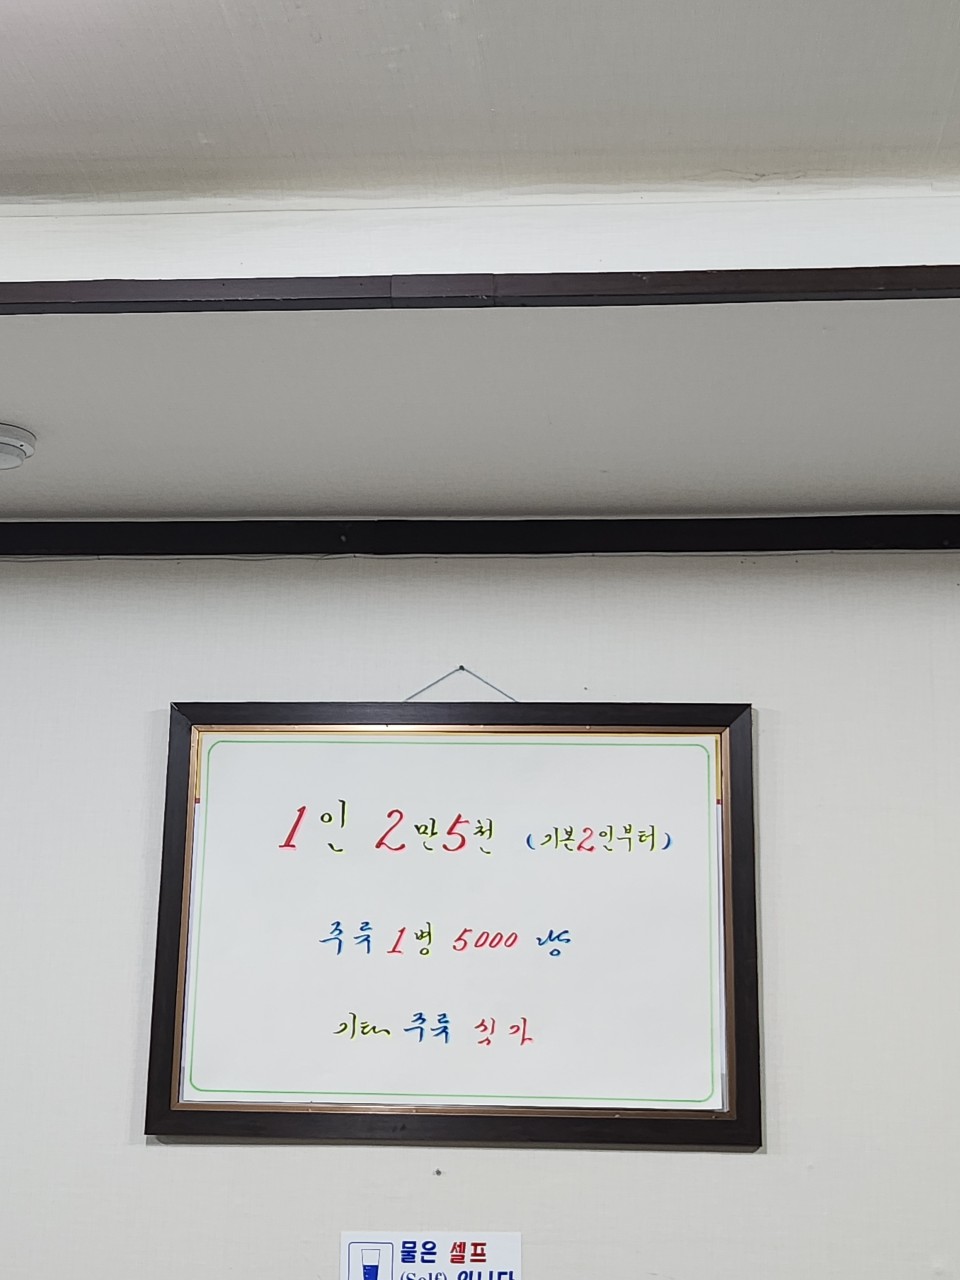 1인 2만5천 (기본2인부터)
주류 1병 5000 냥
기타 주류 싯가
물은 셀프
(Self) 입니다